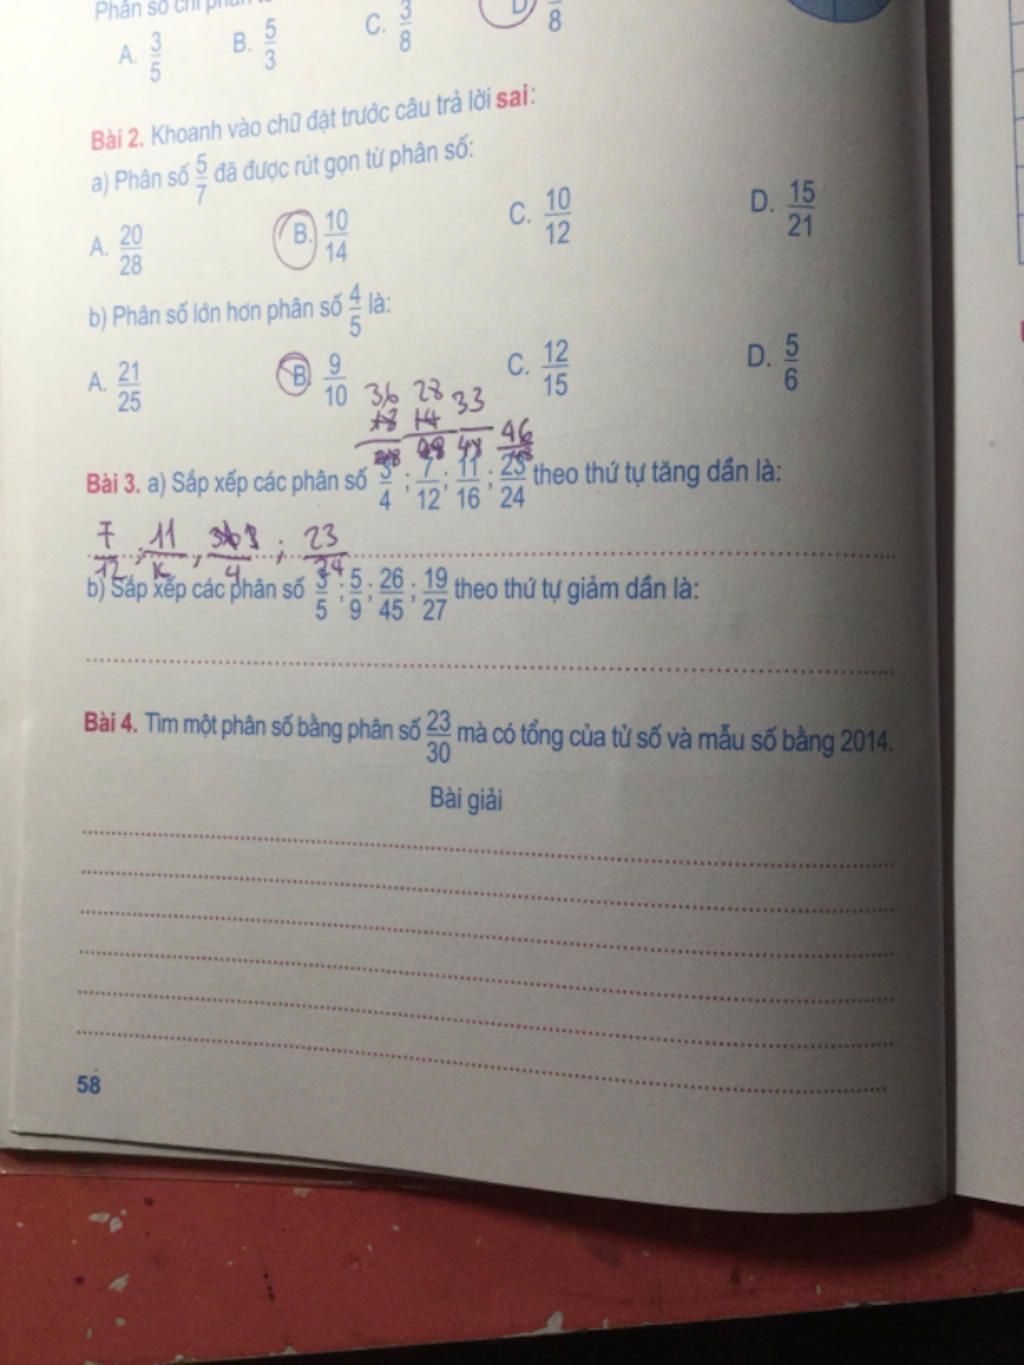 Phân số chỉ
A. 3/5 B. 5/3 C. 3/8 D. /8
Bài 2. Khoanh vào chữ đặt trước câu trả lời sai:
a) Phân số 5/7 đã được rút gọn từ phân số:
A. 20/28 B. 10/14 C. 10/12 D. 15/21
b) Phân số lớn hơn phân số 4/5 là:
A. 21/25 B. 9/10 C. 12/15 D. 5/6
36 28 33
18 14 46
48
Bài 3. a) Sắp xếp các phân số 3/4 ; 7/12 ; 11/16 ; 23/24 theo thứ tự tăng dần là:
7/12 ; 11/ , /4 ; 23/24
b) Sắp xếp các phân số 3/5 ; 5/9 ; 26/45 ; 19/27 theo thứ tự giảm dần là:
Bài 4. Tìm một phân số bằng phân số 23/30 mà có tổng của tử số và mẫu số bằng 2014.
Bài giải
58